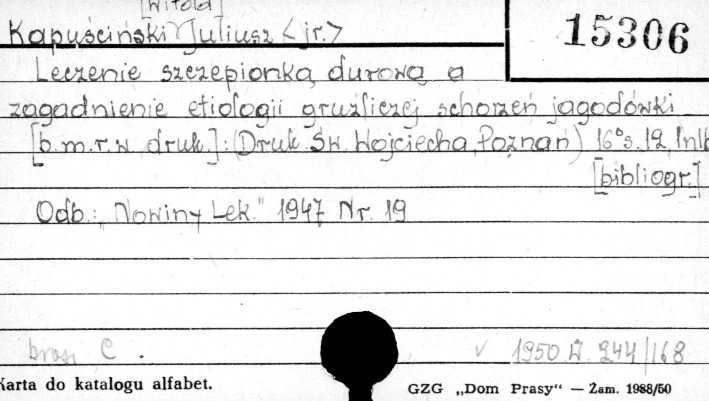 [Witold]
Kapuściński Juliusz <jr.>
15306
Leczenie szczepionką durową a
zagadnienie etiologii gruźliczej schorzeń jagodówki
[b.m.r.w druk.]. (Druk Św. Wojciecha, Poznań) 16° s. 12, Inlb
[bibliogr.]
Odb.: „Nowiny Lek." 1947 Nr. 19
brosz C.
1950 W 244/168
Karta do katalogu alfabet.
GZG „Dom Prasy“ — Zam. 1988/50